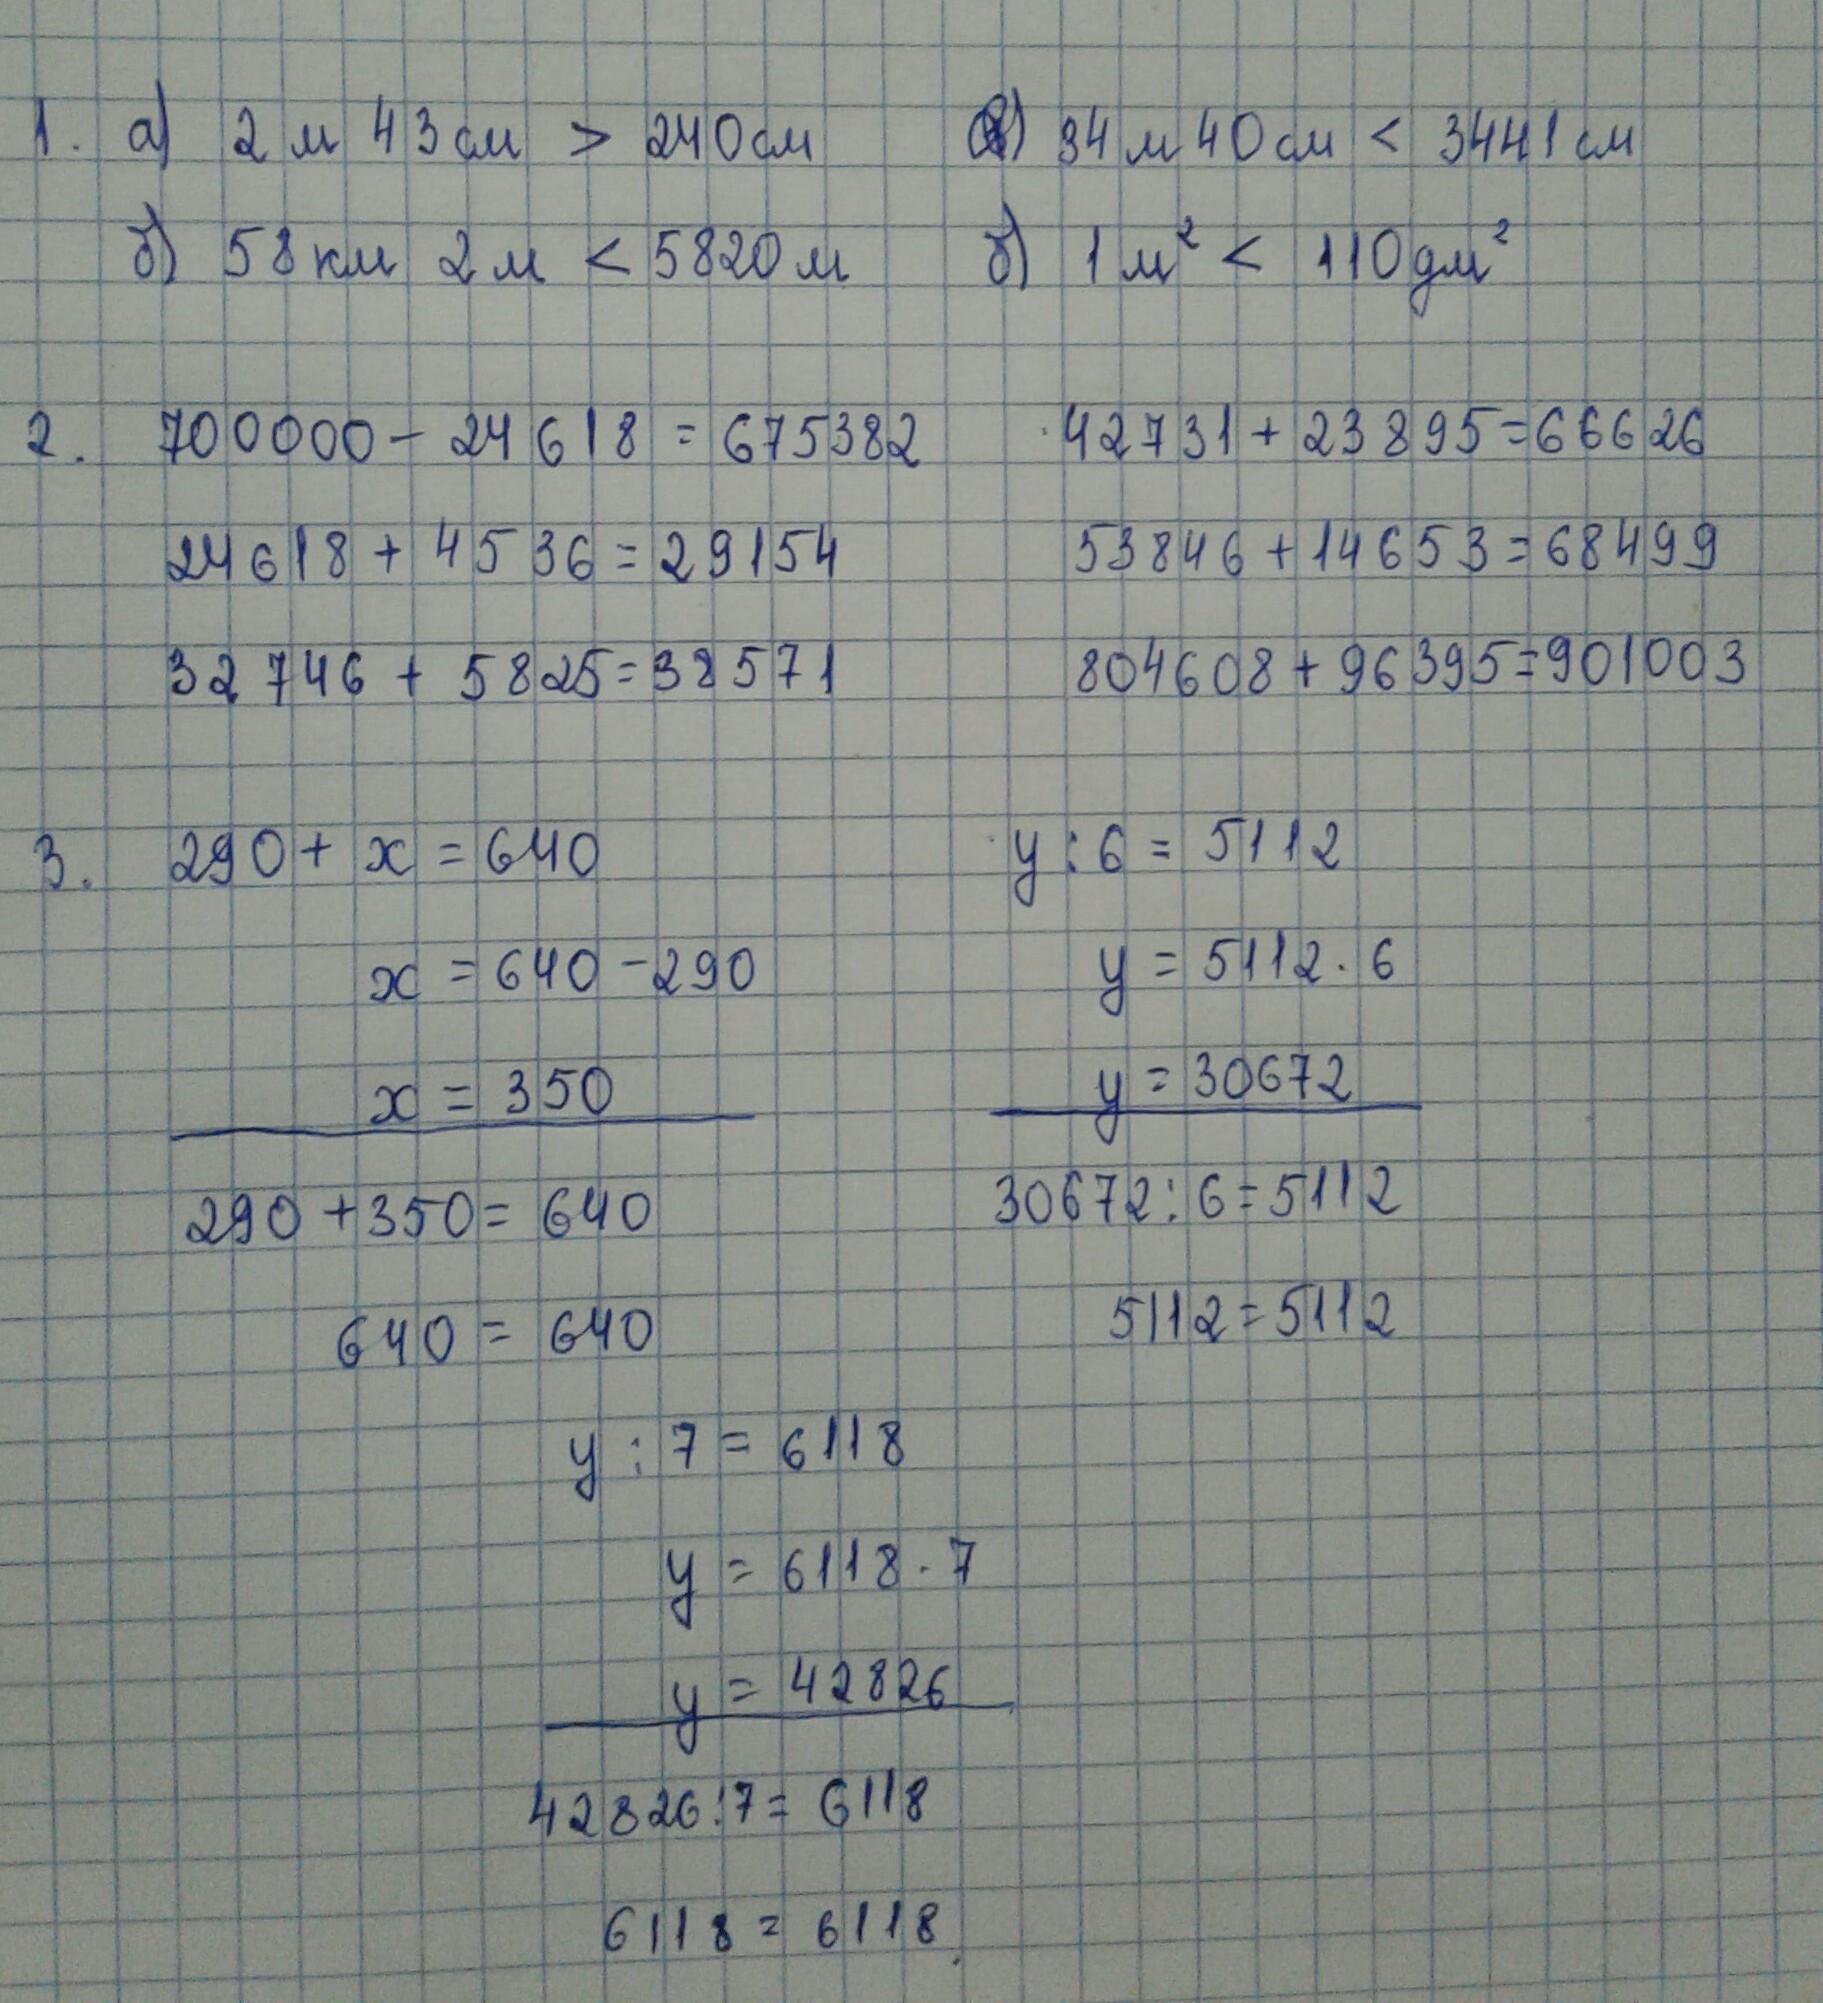 1. а) 2 м 43 см > 240 см а) 34 м 40 см < 3441 см
б) 58 км 2 м < 5820 м б) 1 м² < 110 дм²
2. 700000 - 24618 = 675382 42731 + 23895 = 66626
24618 + 4536 = 29154 53846 + 14653 = 68499
32746 + 5825 = 38571 804608 + 96395 = 901003
3. 290 + x = 640 y : 6 = 5112
x = 640 - 290 y = 5112 · 6
x = 350 y = 30672
290 + 350 = 640 30672 : 6 = 5112
640 = 640 5112 = 5112
y : 7 = 6118
y = 6118 · 7
y = 42826
42826 : 7 = 6118
6118 = 6118